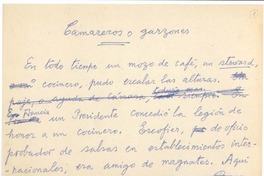 Camareros o garzones
En todo tiempo un mozo de café, un steward,
cocinero, pudo escalar las alturas.
paje, o ayuda de cámara,
En Francia un Presidente concedió la legión de
honor a un cocinero. Escofier, de oficio
probador de salsas en establecimientos inter-
nacionales, era amigo de magnates. Aquí